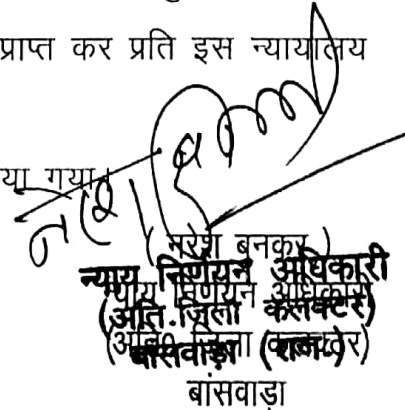 प्राप्त कर प्रति इस न्यायालय
या गया।
( नरेश बनकर )
न्याय निर्णयन अधिकारी
न्याय निर्णयन अधिकारी
(अति. जिला कलक्टर)
(अति० जिला कलक्टर)
बांसवाड़ा (राज.)
बांसवाड़ा